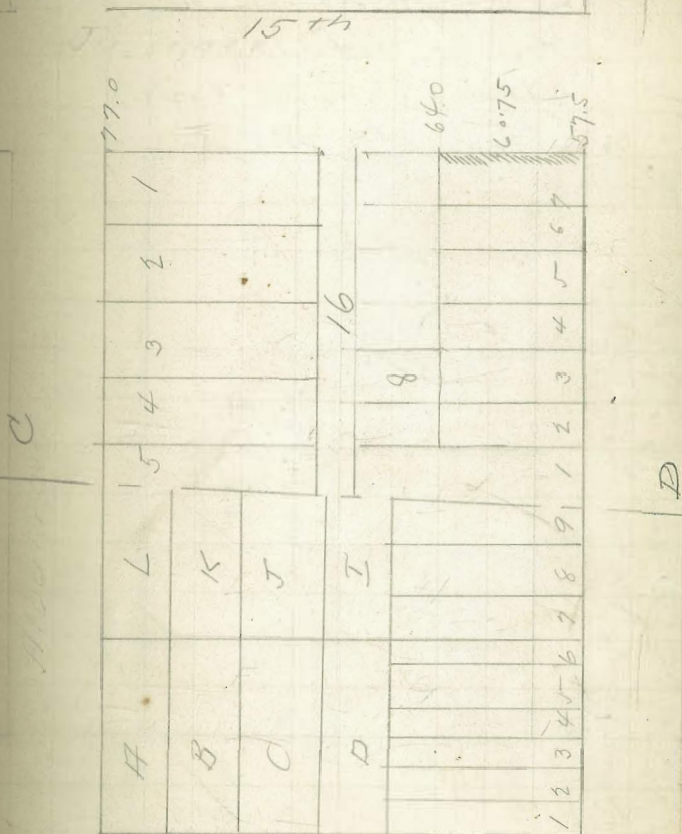 15th
77.0
64.0
60.75
57.5
1
2
3
4
5
16
8
7
6
5
4
3
2
1
9
8
7
6
5
4
3
2
1
L
K
J
I
A
B
C
D
C
D